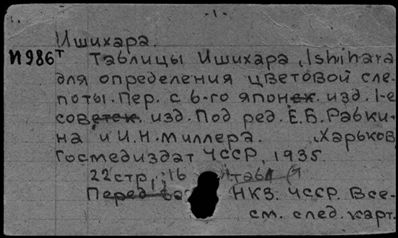 - 1 -
Ишихара.
И986т Таблицы Ишихара „Ishihara
для определения цветовой сле-
поты. Пер. с 6-го японск. изд. 1-е
советск. изд. Под ред. Е.Б. Рабки-
на и И.Н. Миллера. Харьков,
Госмедиздат УССР, 1935.
22 стр.; 16 табл.
Перед НКЗ. УССР. Все-
см. след. карт.